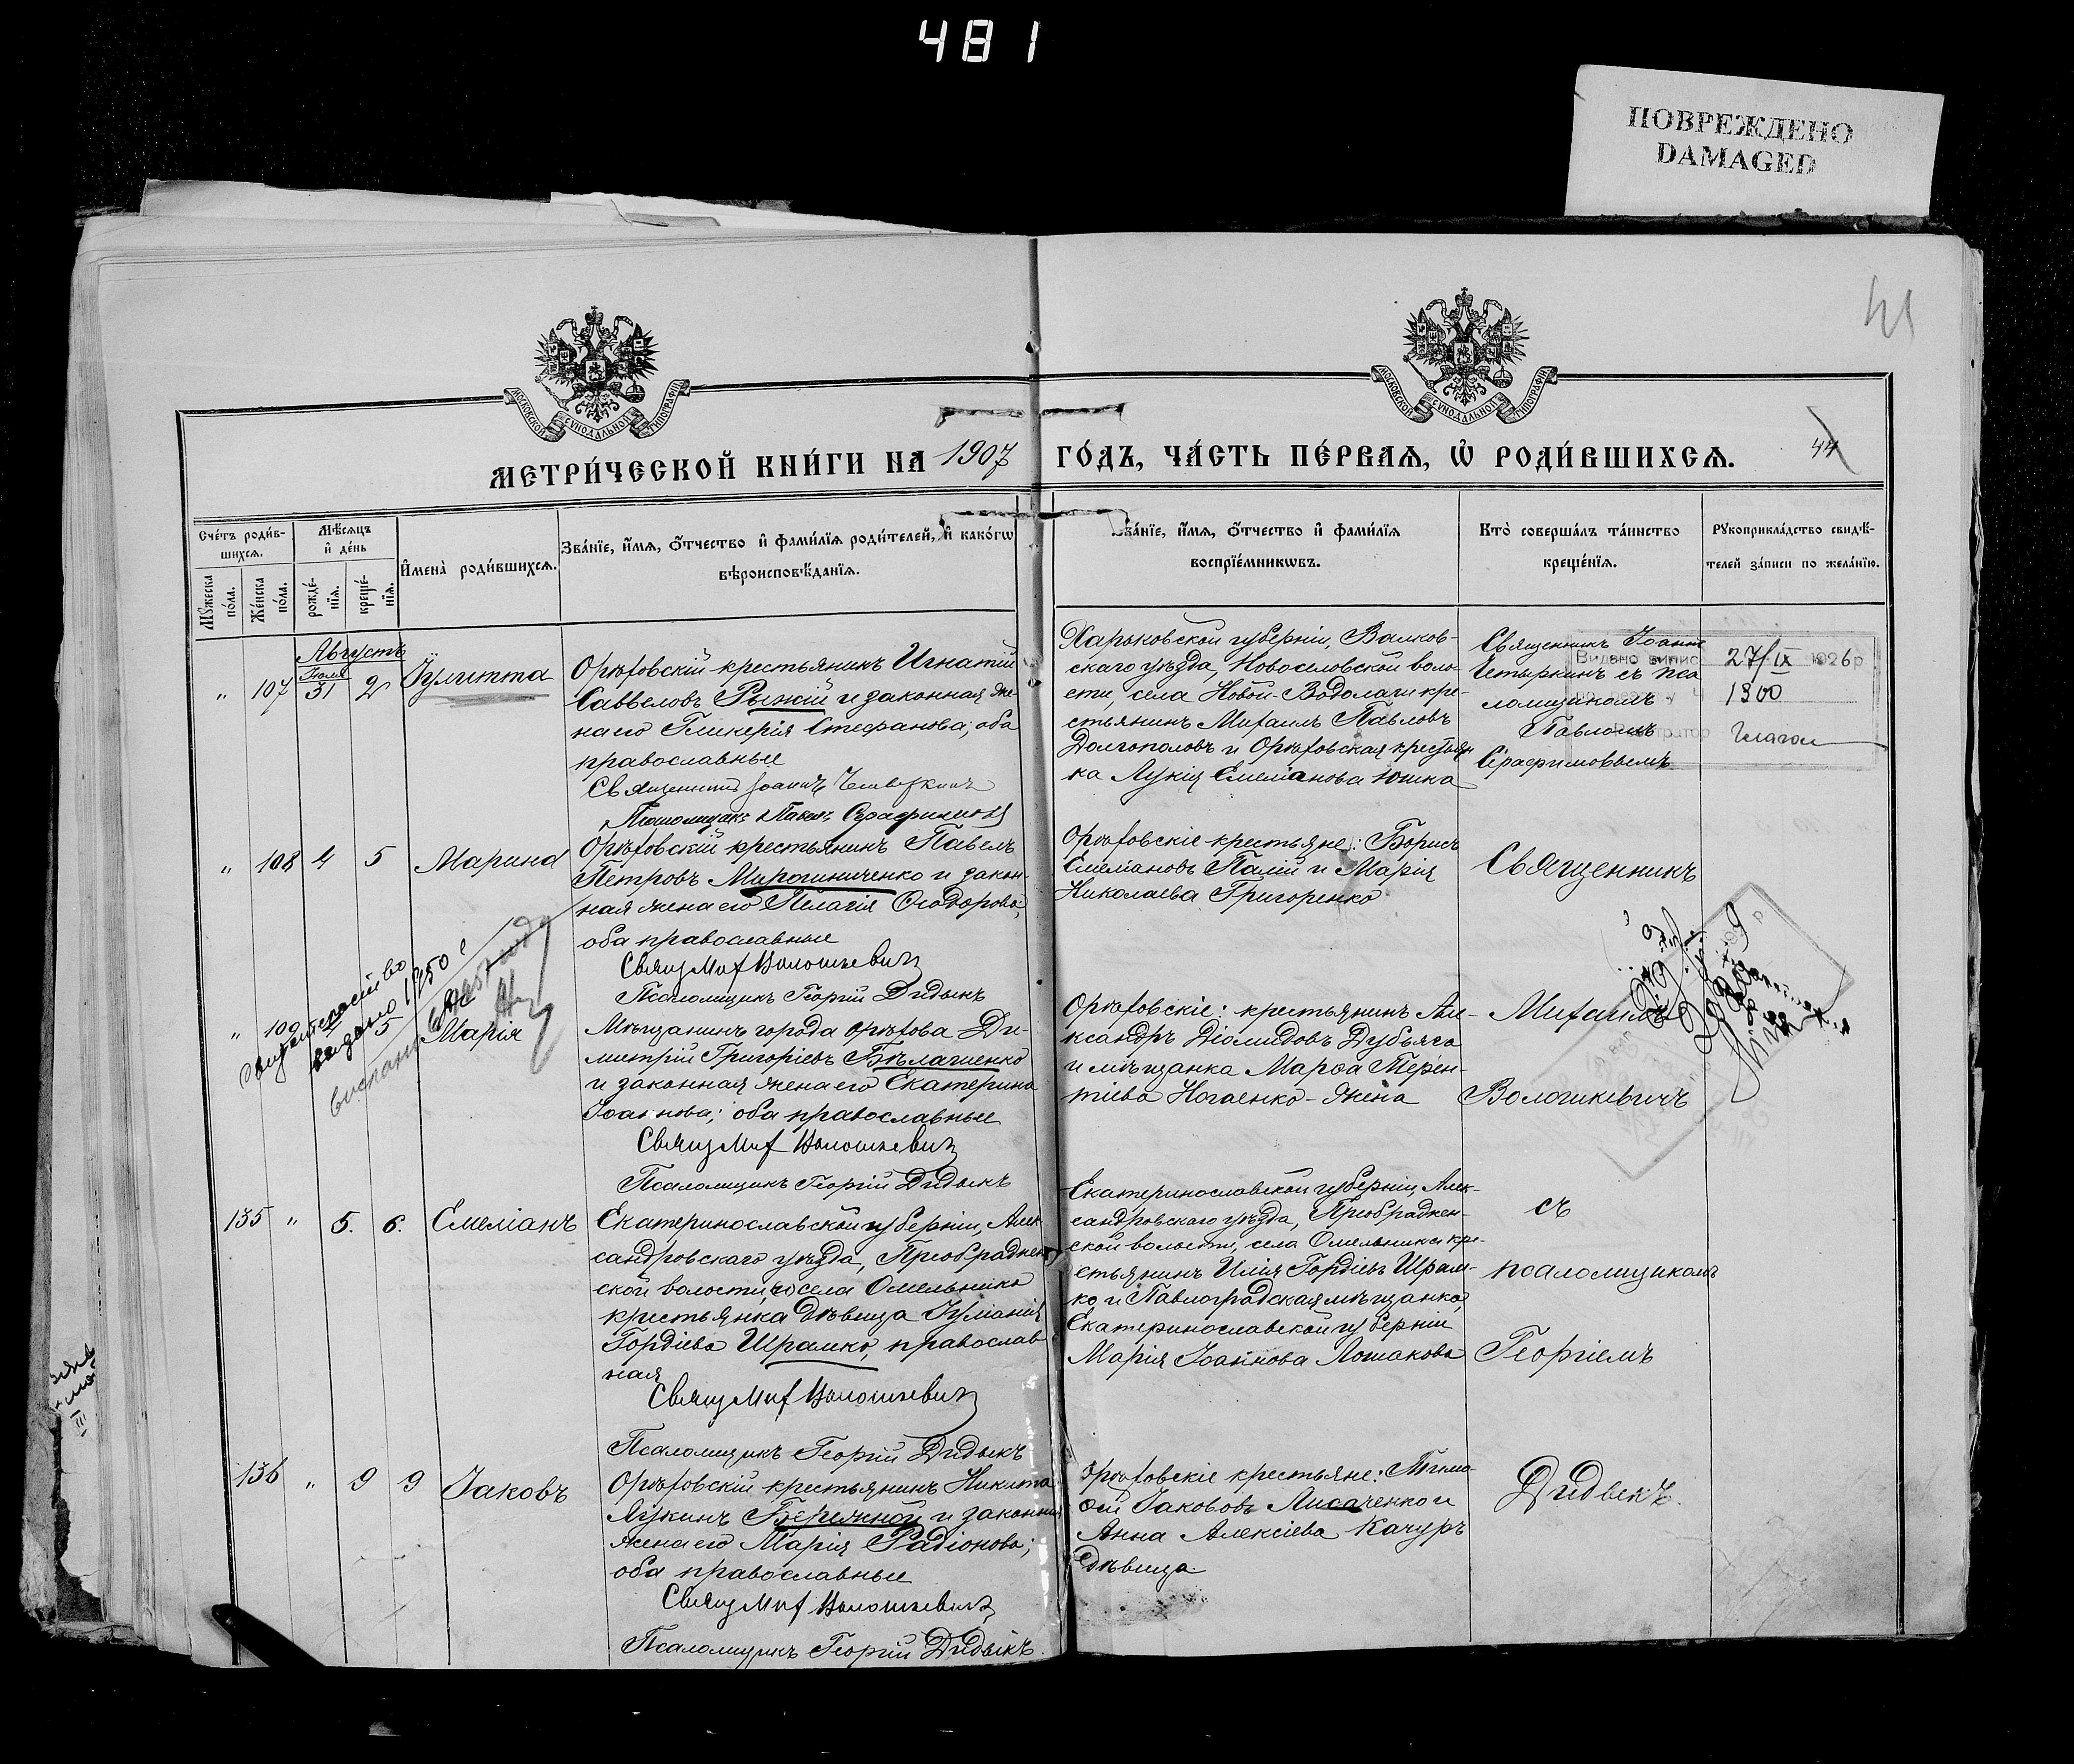 481
ПОВРЕЖДЕНО
DAMAGED
41
МОСКОВСКОЙ СѴНОДАЛЬНОЙ ТИПОГРАФІИ
МОСКОВСКОЙ СѴНОДАЛЬНОЙ ТИПОГРАФІИ
МЕТРИ́ЧЕСКОЙ КНИ́ГИ НА 1907 ГО́ДЪ, ЧА́СТЬ ПЕ́РВАЯ, Ѡ҆ РОДИ́ВШИХСЯ.
44
Сче́тъ роди́вшихся.
Мѣ́сяцъ и҆ де́нь
И҆мена̀ роди́вшихся.
Зва́нїе, и҆́мя, ѻ҆́тчество и҆ фами́лїя роди́телей, и҆ како́гѡ
вѣроисповѣ́данїя.
Зва́нїе, и҆́мя, ѻ҆́тчество и҆ фами́лїя
воспрїе́мникѡвъ.
Кто̀ соверша́лъ та́инство
креще́нїя.
Рꙋкоприкла́дство свидѣ́-
телей за́писи по жела́нїю.
Мꙋ́жеска по́ла.
Же́нска по́ла.
рожде́-нїя.
креще́-нїя.
Августъ
Іюля
" 107 31 2 Іулитта
Орѣховскій крестьянинъ Игнатій
Саввеловъ Рыжій и законная же-
на его Гликерія Стефанова; оба
православные
Священникъ Іоаннъ Четыркинъ
Псаломщикъ Павелъ Серафимовъ
Харьковской губерніи, Валков-
скаго уѣзда, Новоселовской воло-
сти, села Новой-Водолаги кре-
стьянинъ Михаилъ Павловъ
Долгополовъ и Орѣховская крестьян
ка Лукія Емеліанова Юшка
Священникъ Іоаннъ
Четыркинъ съ пса
ломщикомъ
Павломъ
Серафимовымъ
Видано випис
27/IX 1926 р
1300
" 108 4 5 Марина
Орѣховскій крестьянинъ Павелъ
Петровъ Мирошниченко и закон-
ная жена его Пелагія Ѳеодорова,
оба православные
Свящ Мих Волошкевич
Псаломщикъ Георгій Дидыкъ
Орѣховскіе крестьяне: Борисъ
Емеліановъ Палій и Марія
Николаева Григоренко
Священникъ
" 109 5 Марія
выдано 1950 г
Мѣщанинъ города Орѣхова Ди-
митрій Григоріевъ Бѣлашенко
и законная жена его Екатерина
Іоаннова; оба православные
Свящ Мих Волошкевич
Псаломщикъ Георгій Дидыкъ
Орѣховскіе: крестьянинъ Але-
ксандръ Діомидовъ Дубяга
и мѣщанка Марѳа Терен-
тіева Ногаенко-Жена
Михаилъ
Волошкевичъ
135 " 5. 6. Емеліанъ
Екатеринославской губерніи, Алек
сандровскаго уѣзда, Преображен
ской волости, села Омельника
крестьянка дѣвица Іуліанія
Гордіева Шрамко, православ
ная
Свящ Мих Волошкевич
Псаломщикъ Георгій Дидыкъ
Екатеринославской губерніи, Алек-
сандровскаго уѣзда, Преображен-
ской волости, села Омельника кре-
стьянинъ Илія Гордіевъ Шрам-
ко и Павлоградская мѣщанка,
Екатеринославской губерніи
Марія Іоаннова Лошакова
съ
псаломщикомъ
Георгіемъ
136 " 9 9 Іаковъ
Орѣховскій крестьянинъ Никита
Лукинъ Бережной и законная
жена его Марія Радіонова;
оба православные
Свящ Мих Волошкевич
Псаломщикъ Георгій Дидыкъ.
Орѣховскіе крестьяне: Тимо-
ѳей Іаковovъ Лисаченко и
Анна Алексіева Качуръ
дѣвица
Дидыкъ.